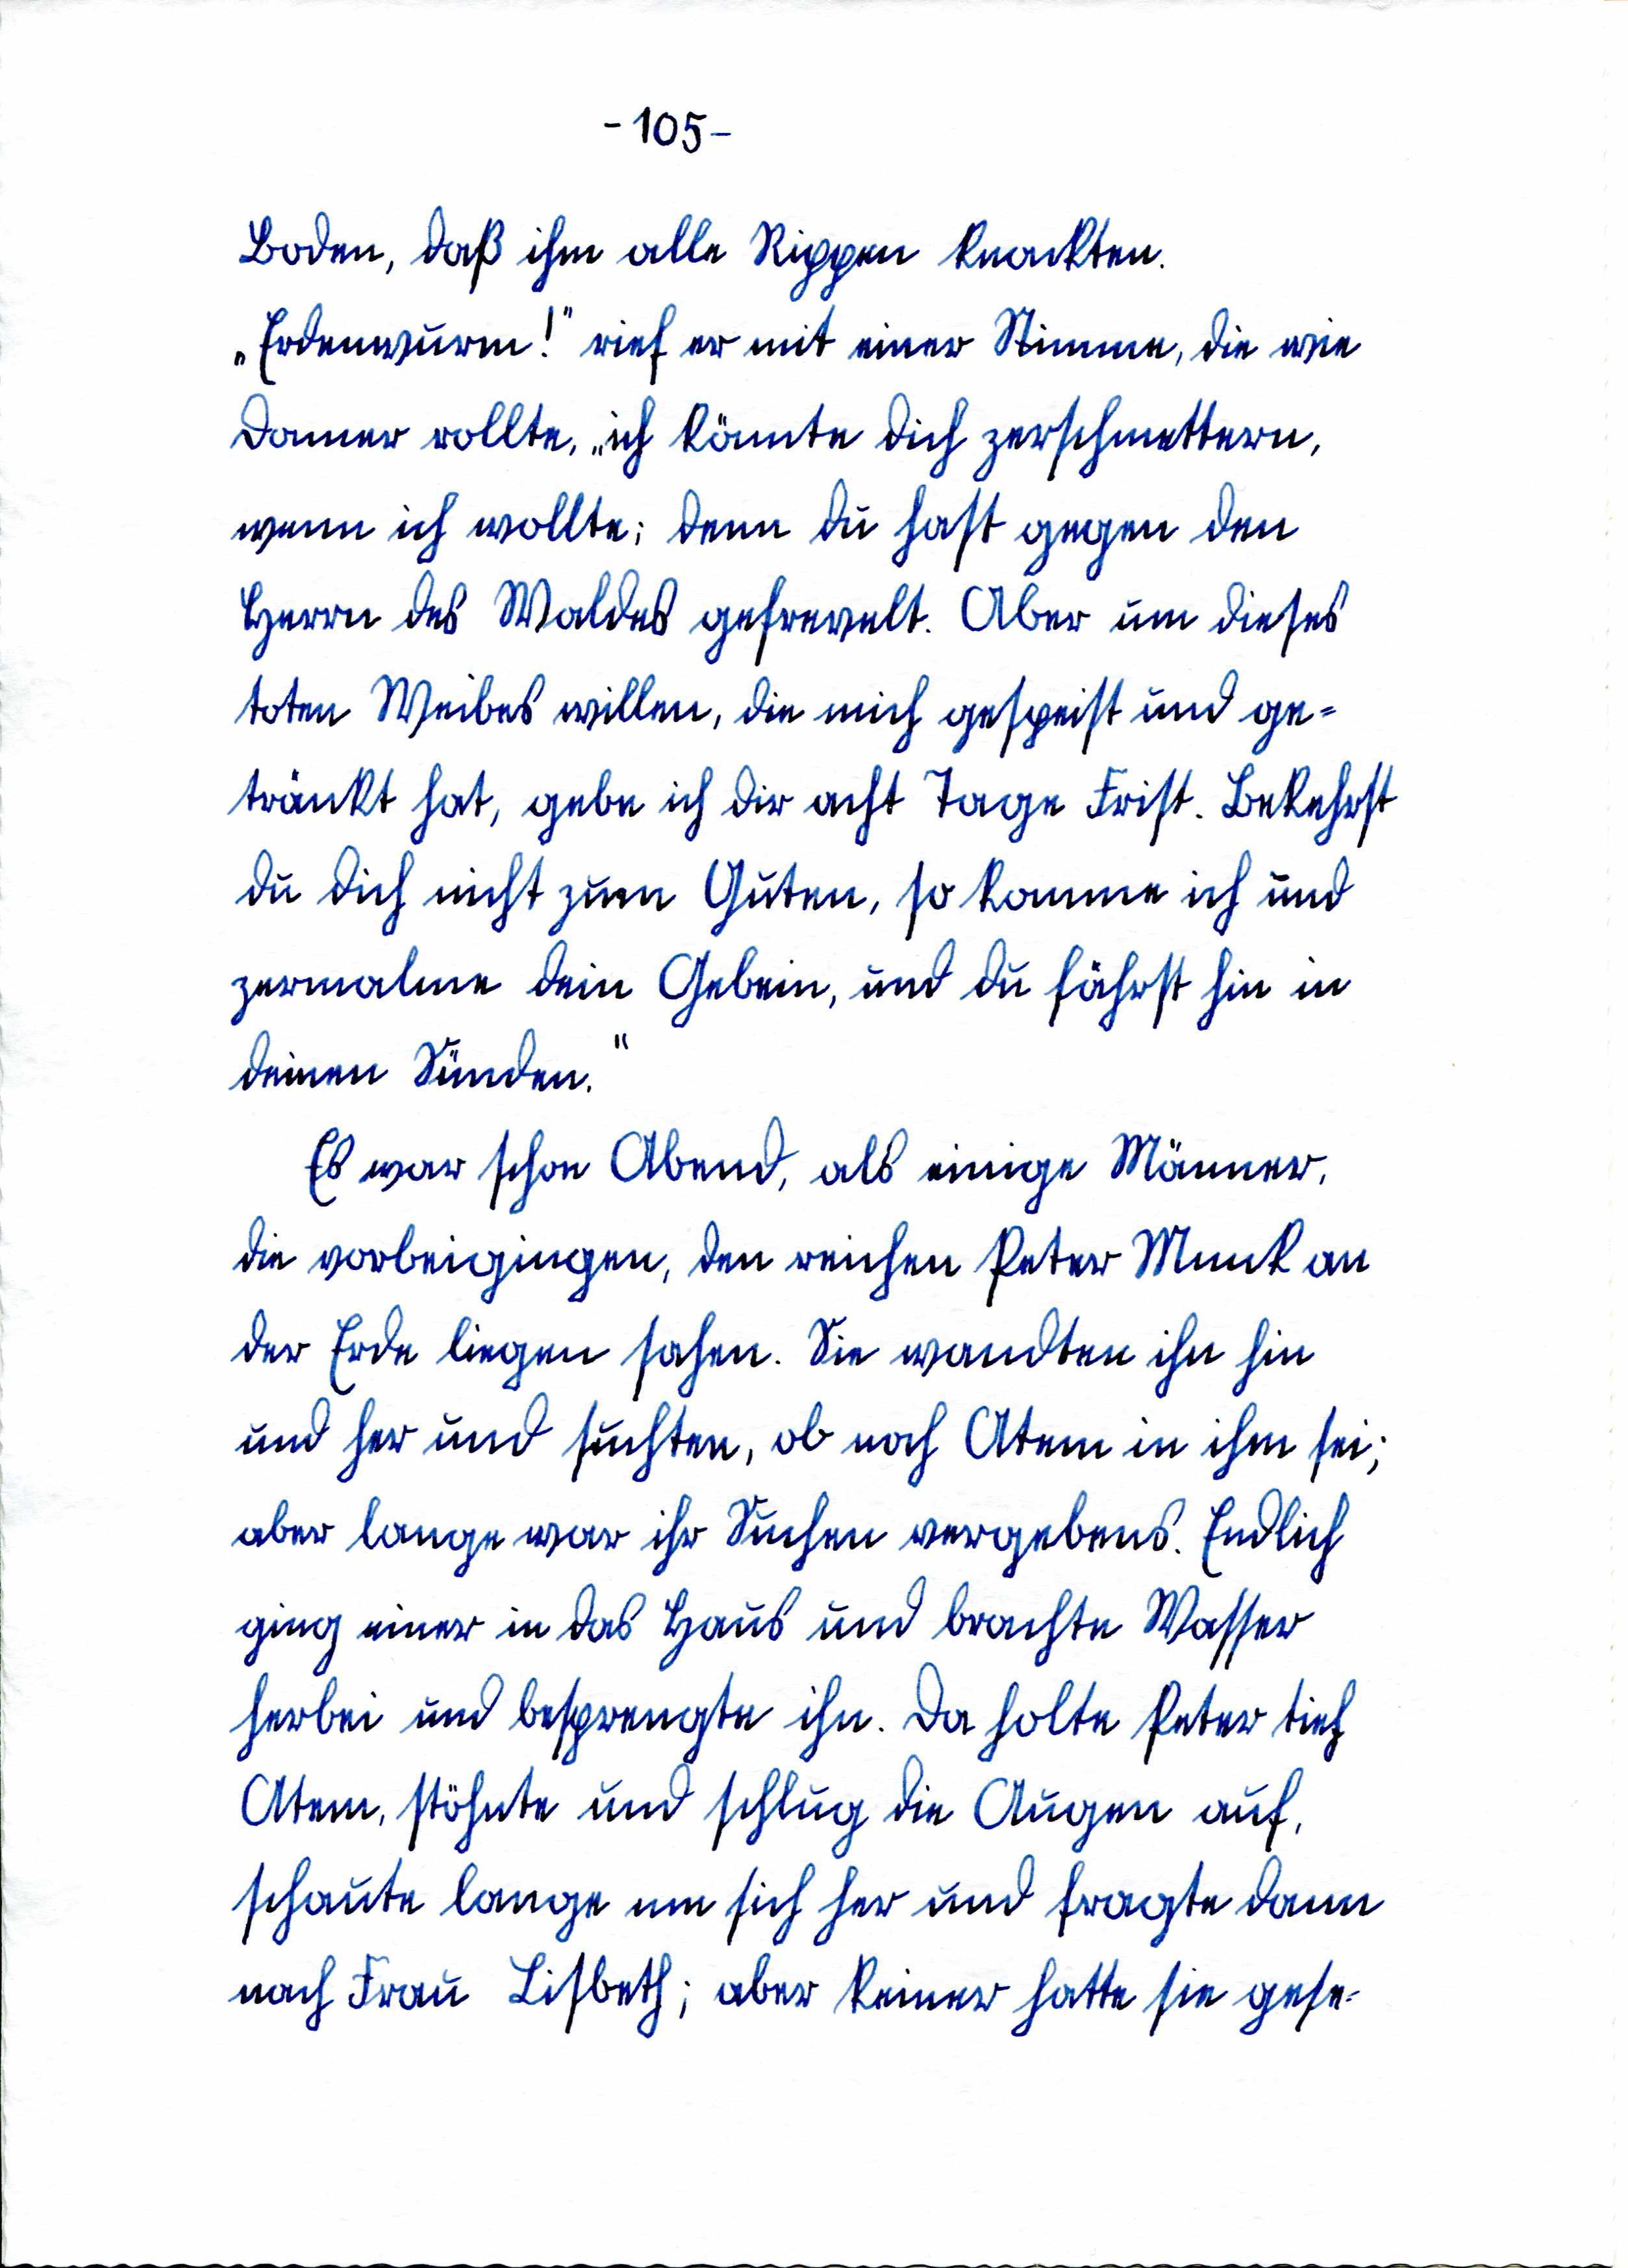 - 105 -
Boden, daß ihm alle Rippen knackten.
„Erdenwurm!" rief er mit einer Stimme, die wie
Donner rollte, „ich könnte dich zerschmettern,
wenn ich wollte; denn du hast gegen den
Herrn des Waldes gefrevelt. Aber um dieses
toten Weibes willen, die mich gespeist und ge-
tränkt hat, gebe ich dir acht Tage Frist. Bekehrst
du dich nicht zum Guten, so komme ich und
zermalme dein Gebein, und du fährst hin in
deinen Sünden."
Es war schon Abend, als einige Männer,
die vorbeigingen, den reichen Peter Munk an
der Erde liegen sahen. Sie wandten ihn hin
und her und suchten, ob noch Atem in ihm sei;
aber lange war ihr Suchen vergebens. Endlich
ging einer in das Haus und brachte Wasser
herbei und besprengte ihn. Da holte Peter tief
Atem, stöhnte und schlug die Augen auf,
schaute lange um sich her und fragte dann
nach Frau Lisbeth; aber keiner hatte sie gese-